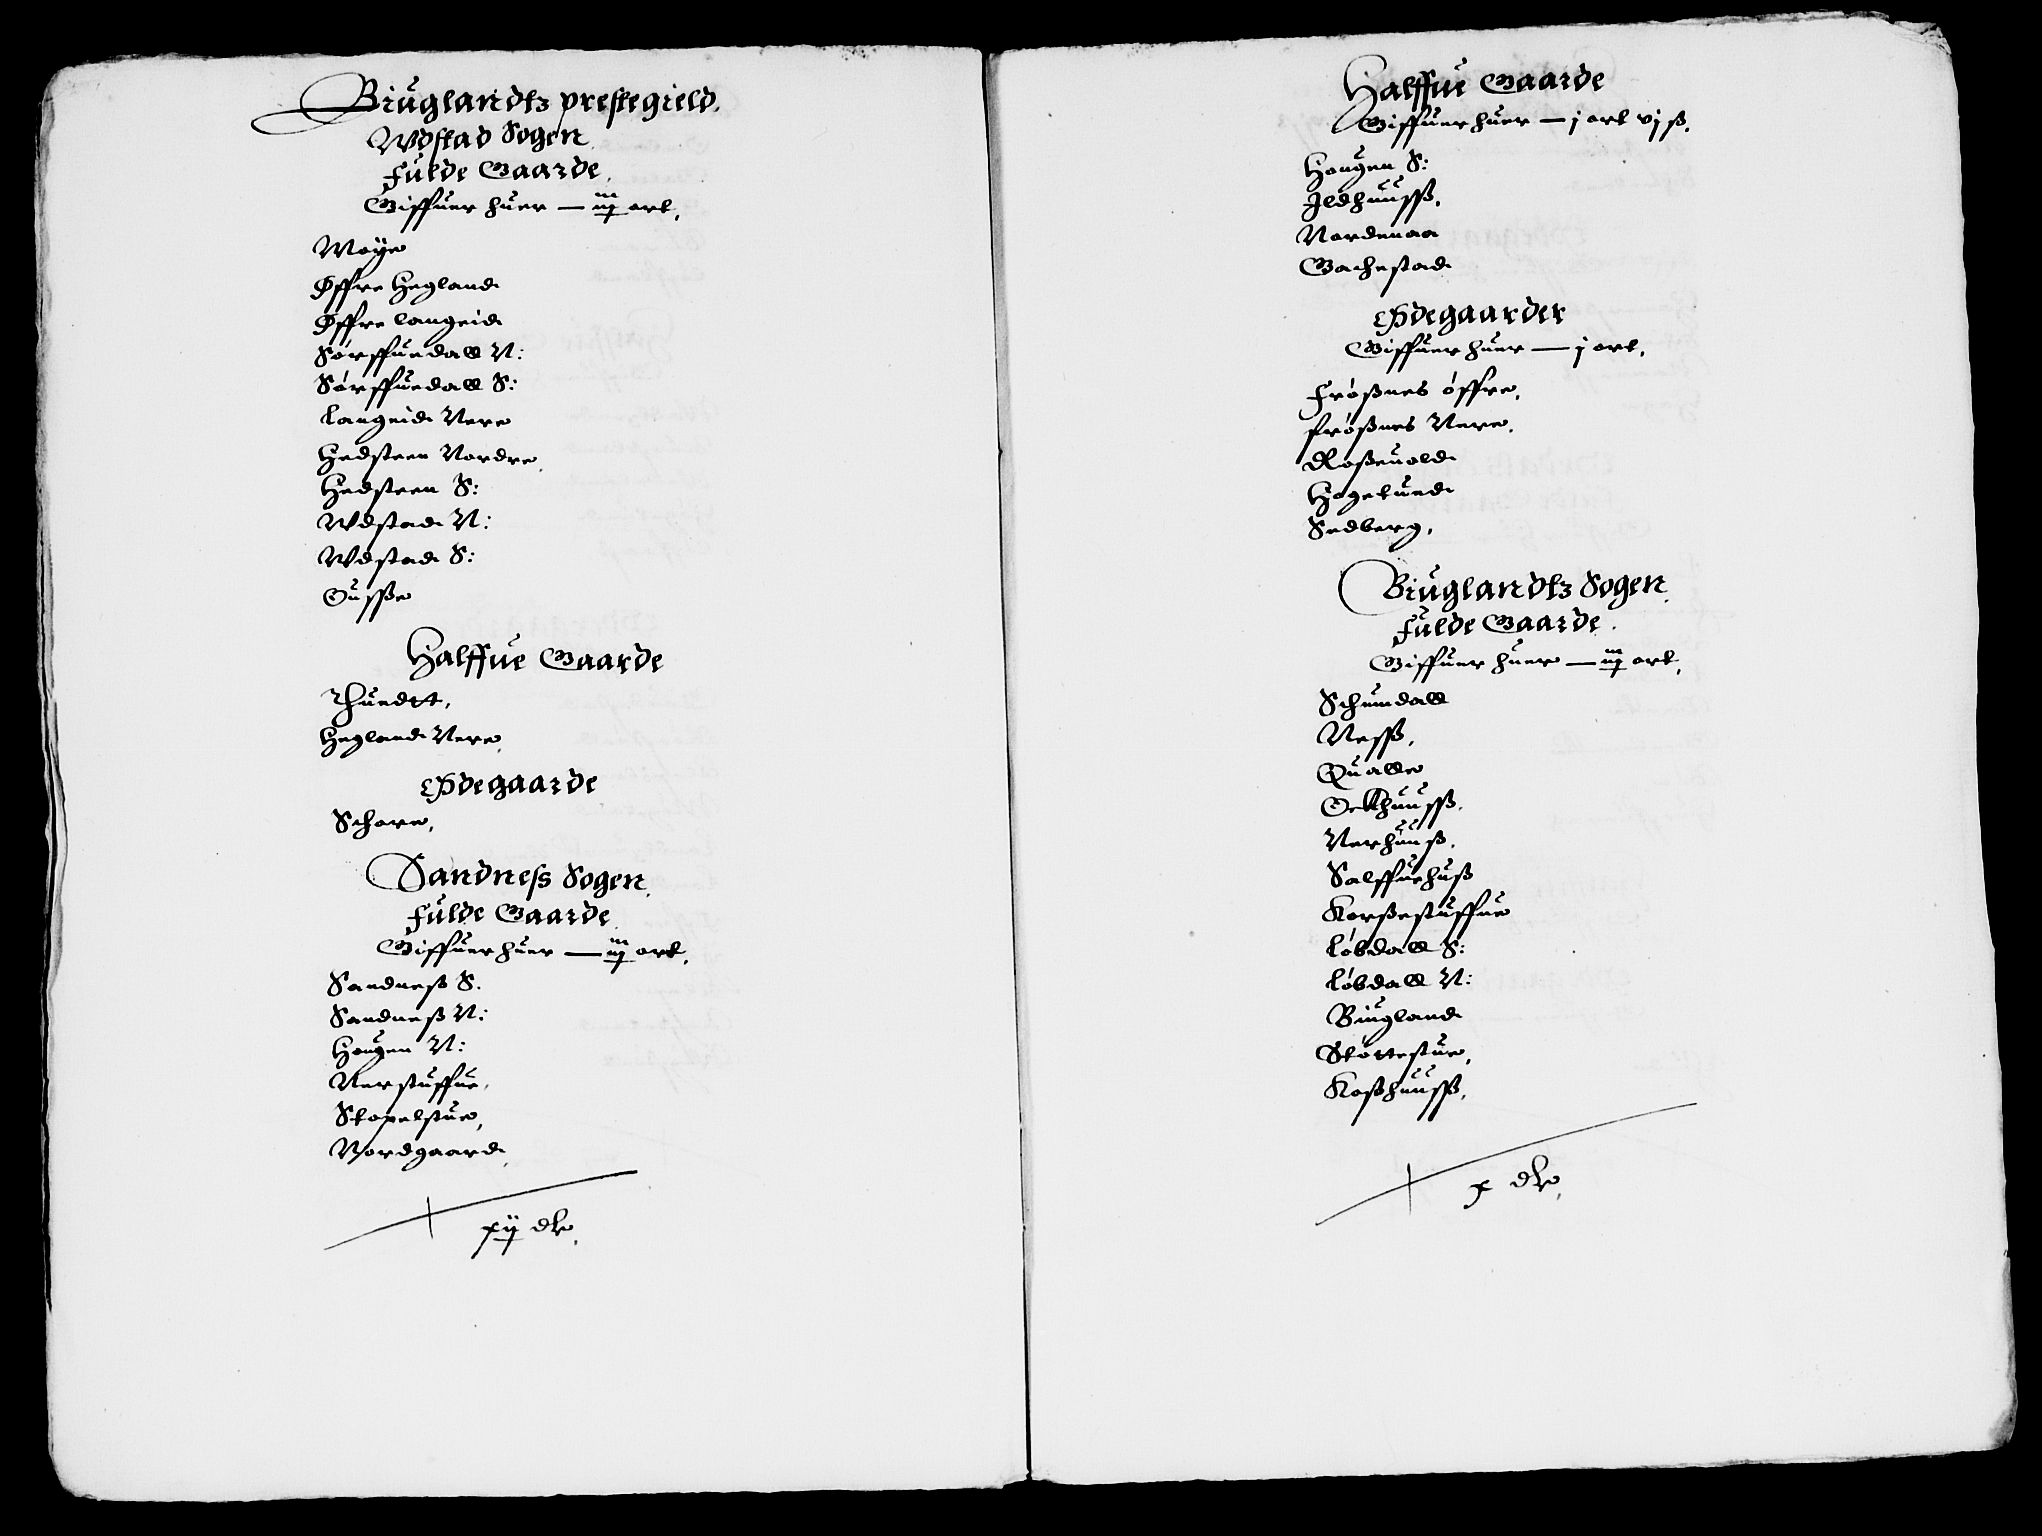 Biuglandtz prestegield.
Wdstad Sogen
Fulde Gaarde.
Giffuer huer — iij ort.
Moÿe
Øffre Hegland
Øffre langeid
Sørffuedall N:
Sørffuedall S:
langeid Nere
Hedsteen Nordre
Hedsteen S:
Wdstad N:
Wdstad S:
Ousße
Halffue Gaarde
Thuedtt,
Hegland Nere
Ødegaarde
Schore,
Sandness Sogen
Fulde Gaarde
Giffuer huer — iij ort,
Sandneß S.
Sandneß N:
Hougen N:
Nerstuffue,
Stopelstue,
Nordgaard
xij dr.
Halffue Gaarde
Giffuer huer — j ort vj ß.
Hougen S:
Ildhuusß.
Nordenaa
Bachestad
Ødegaarder
Giffuer huer — j ort.
Frößnes öffre,
frößnes Nere,
Roßeuold
Hogetued
Sedberg,
Biuglandtz Sogen
Fulde Gaarde.
Giffuer huer — iij ort,
Schomdall
Nesß,
Qualle
Nerhuuß,
Salffuehuß
Korßestuffue
löbdall S:
löbdall N:
Biugland
Stöttestue,
Koßhuusß,
x dr.